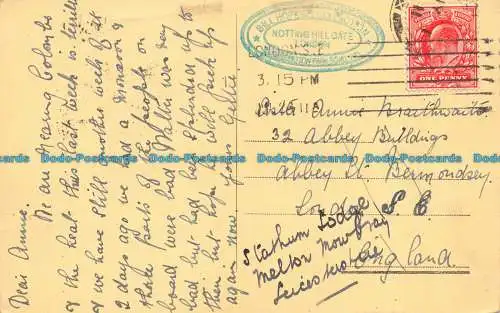 Dear Annie.
We are nearing Colombo
& the heat this last week is terrible
& we have still another week of it
2 days ago we had a monsoon &
three parts of the people on
board were bad. Walter was very
bad but had to attend to
them but hope he will pick up
again now. Yours Gertie
NOTTING HILL GATE
LONDON
LONDON. S.E.
3.15 PM
11
ONE PENNY
Miss Annie Braithwaite
32 Abbey Buildings
Abbey St. Bermondsey
London S E
England
Statham Lodge
Melton Mowbray
Leicestershire
Dodo-Postcards Dodo-Postcards Dodo-Postcards Dodo-Postcards Dodo-Postcards